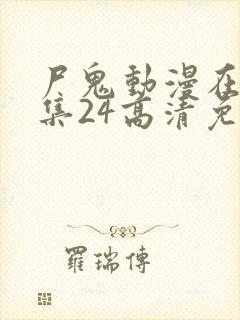 尸鬼動漫在
集24高清免
羅瑞傳